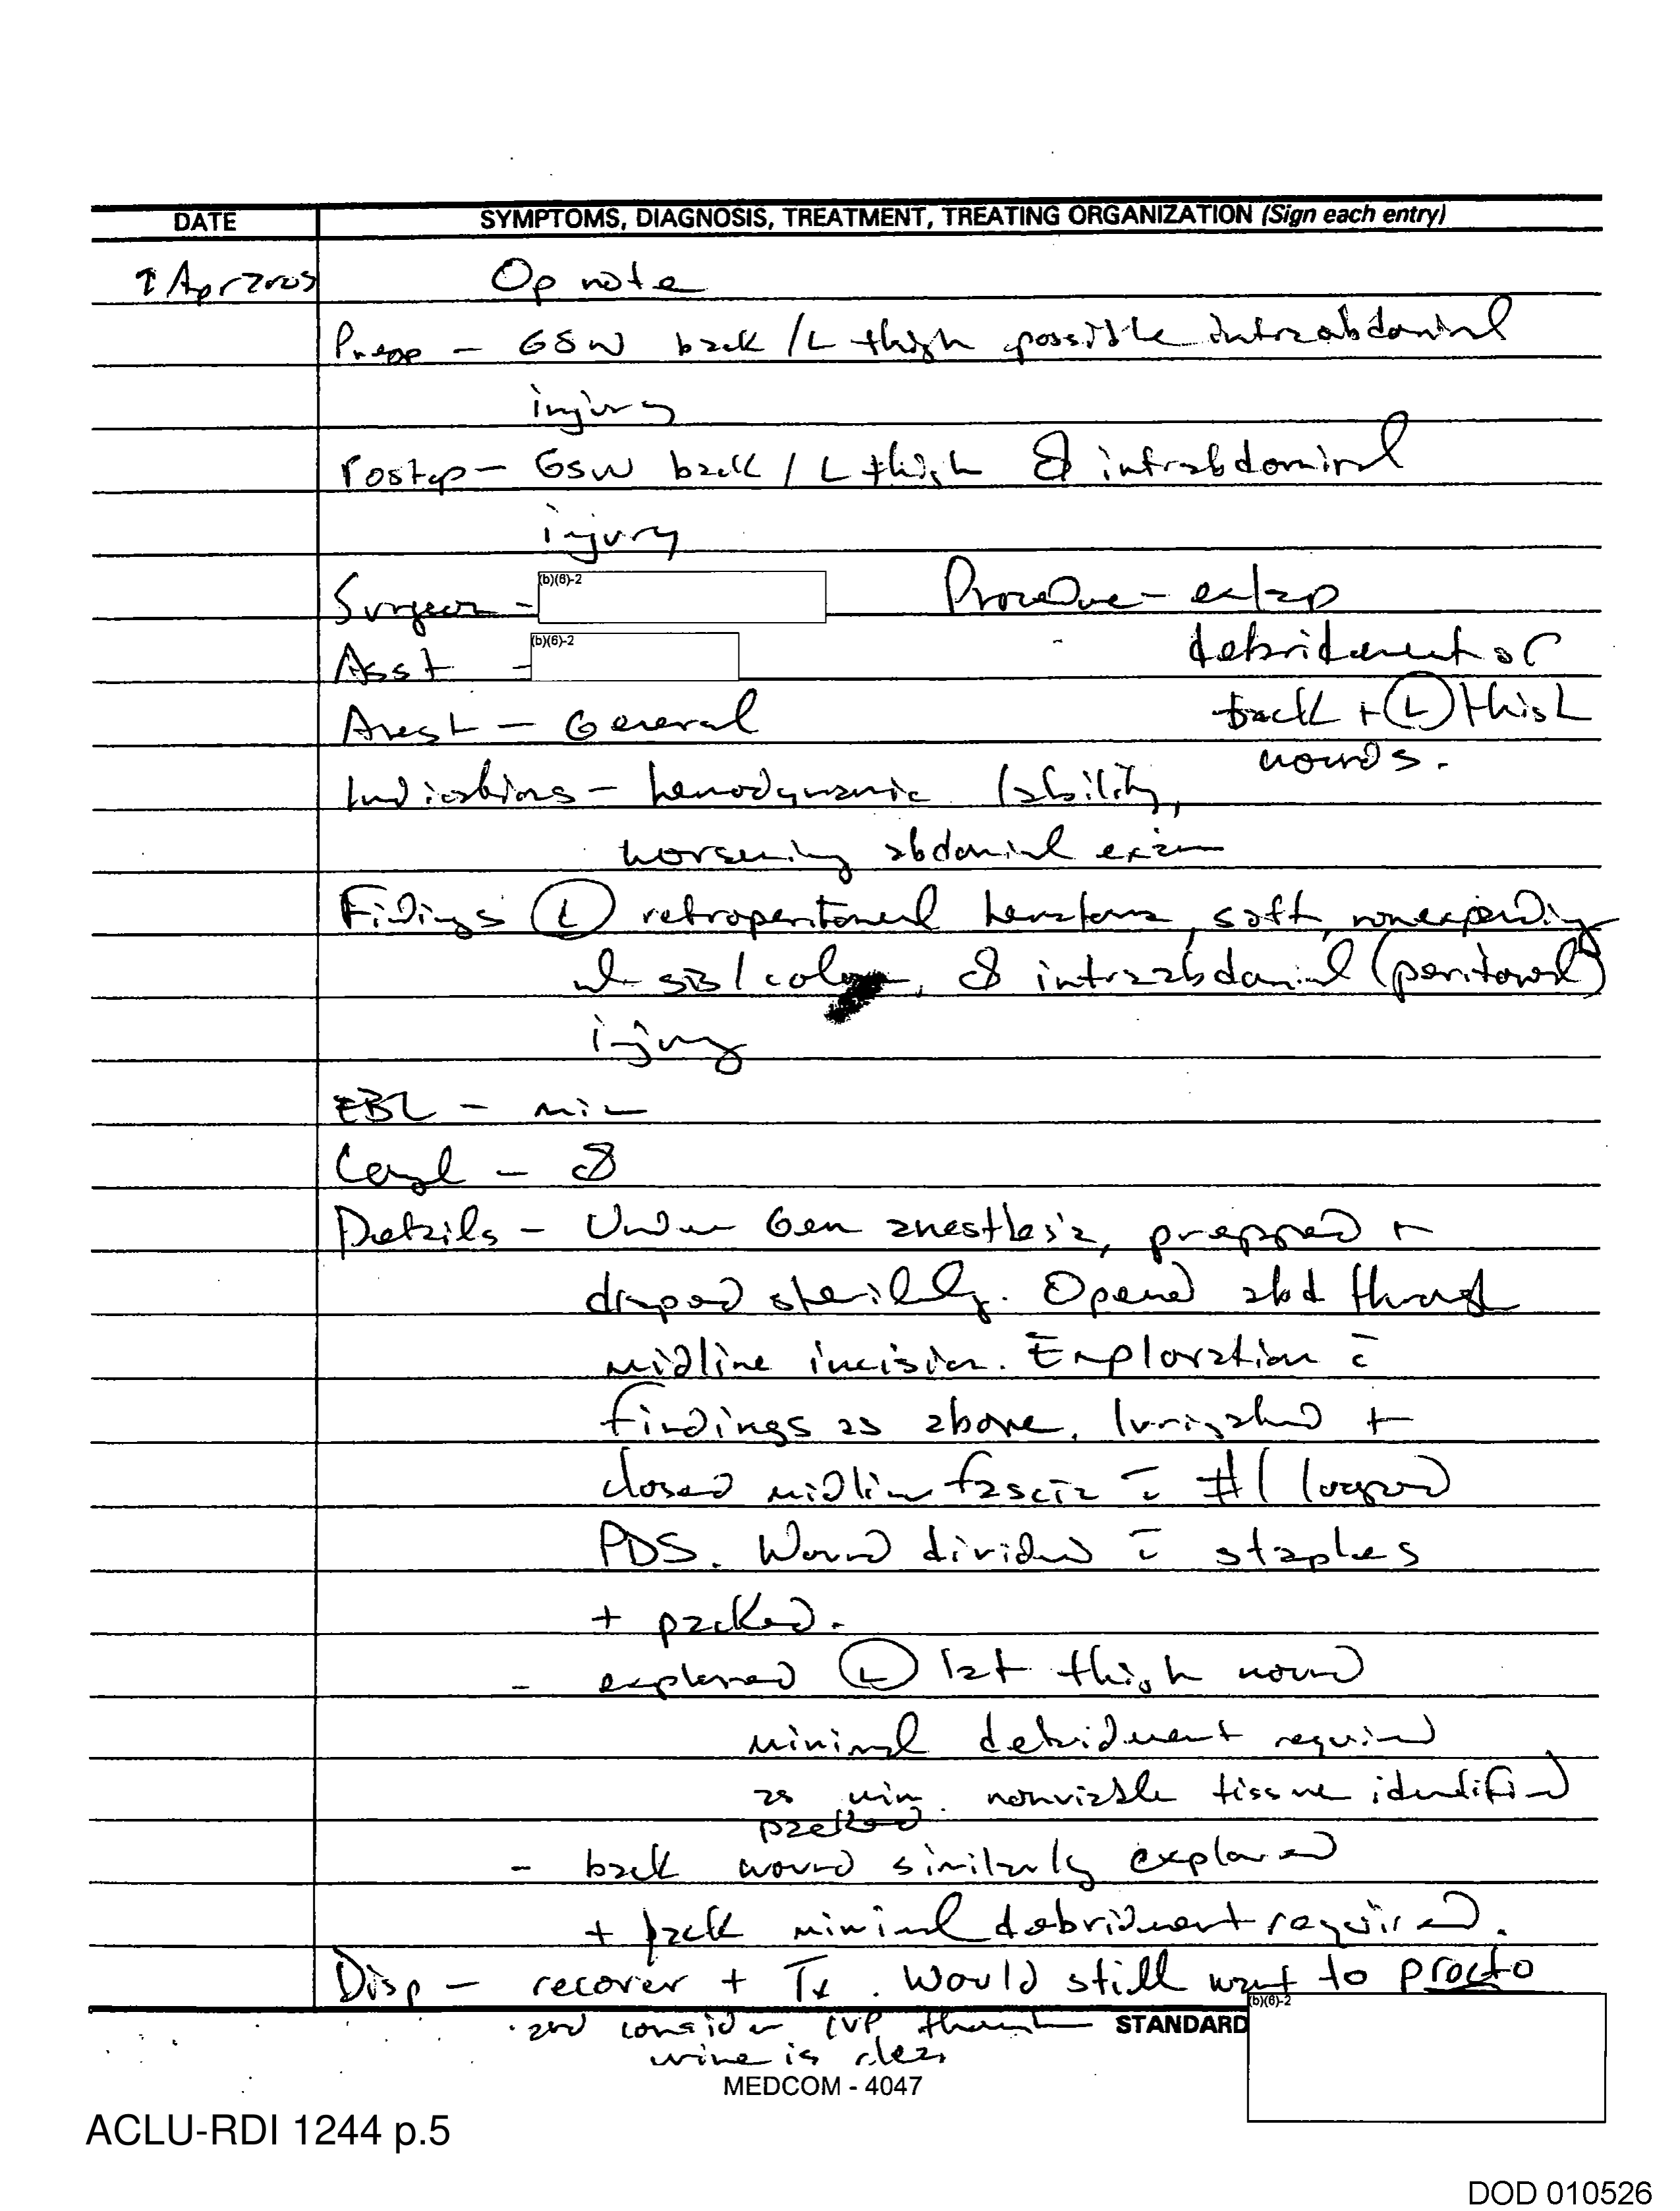 DATE SYMPTOMS, DIAGNOSIS, TREATMENT, TREATING ORGANIZATION (Sign each entry)
Apr 2003 Op note
Preop - GSW back / L thigh possible intraabdominal
injury
Postop - GSW back / L thigh Ø intrabdominal
injury
Surgeon - (b)(6)-2 Procedure - ex lap
Asst - (b)(6)-2 debridement of
Anest - General back + (L) thigh
wounds.
Indications - hemodynamic lability,
worsening abdominal exam
Findings (L) retroperitoneal hematoma, soft, nonexpanding
nl SB / colon, Ø intraabdominal (peritoneal)
injury
EBL - min
Compl - Ø
Details - Under Gen anesthesia, prepped +
draped sterilely. Opened abd through
midline incision. Exploration c̄
findings as above. Irrigated +
closed midline fascia c̄ #1 looped
PDS. Wound divided c̄ staples
+ packed.
- explored (L) lat thigh wound
minimal debridment required
as min nonviable tissue identified
packed
- back wound similarly explored
+ pack minimal debridment required.
Disp - recover + Tx. Would still want to procto
and consider IVP though STANDARD (b)(6)-2
urine is clear
MEDCOM - 4047
ACLU-RDI 1244 p.5
DOD 010526